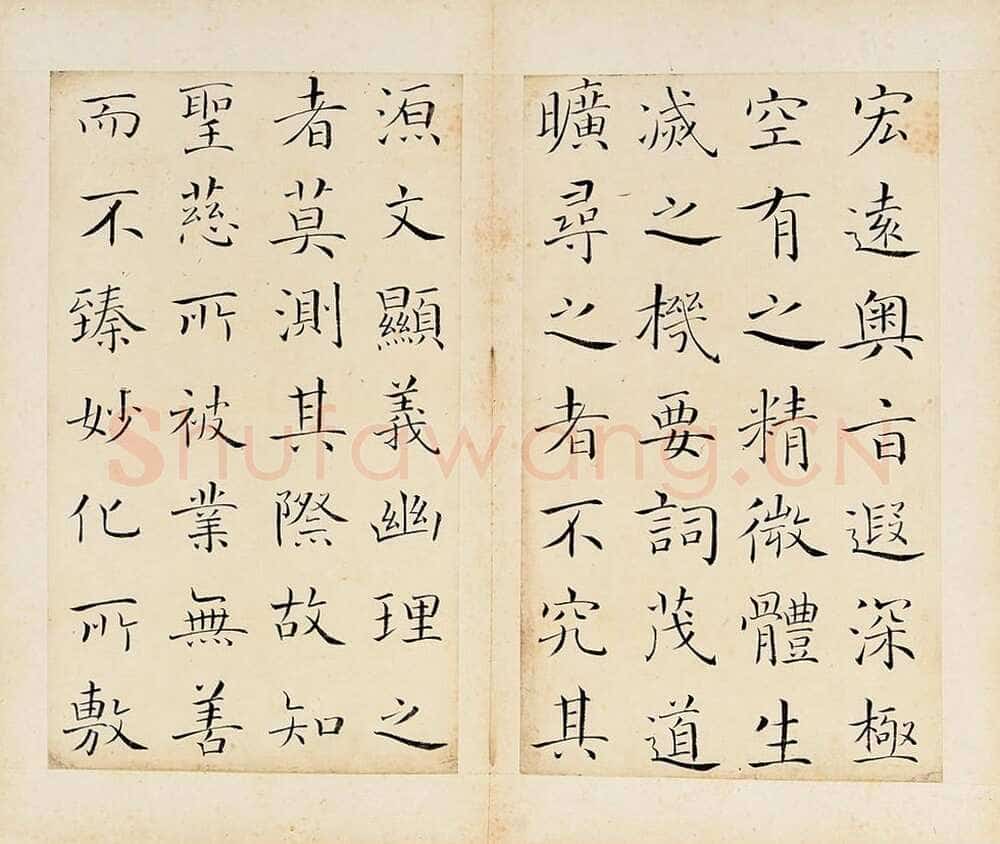 宏遠奧旨遐深極
空有之精微體生
滅之機要詞茂道
曠尋之者不究其
源文顯義幽理之
者莫測其際故知
聖慈所被業無善
而不臻妙化所敷
Shufawang.CN